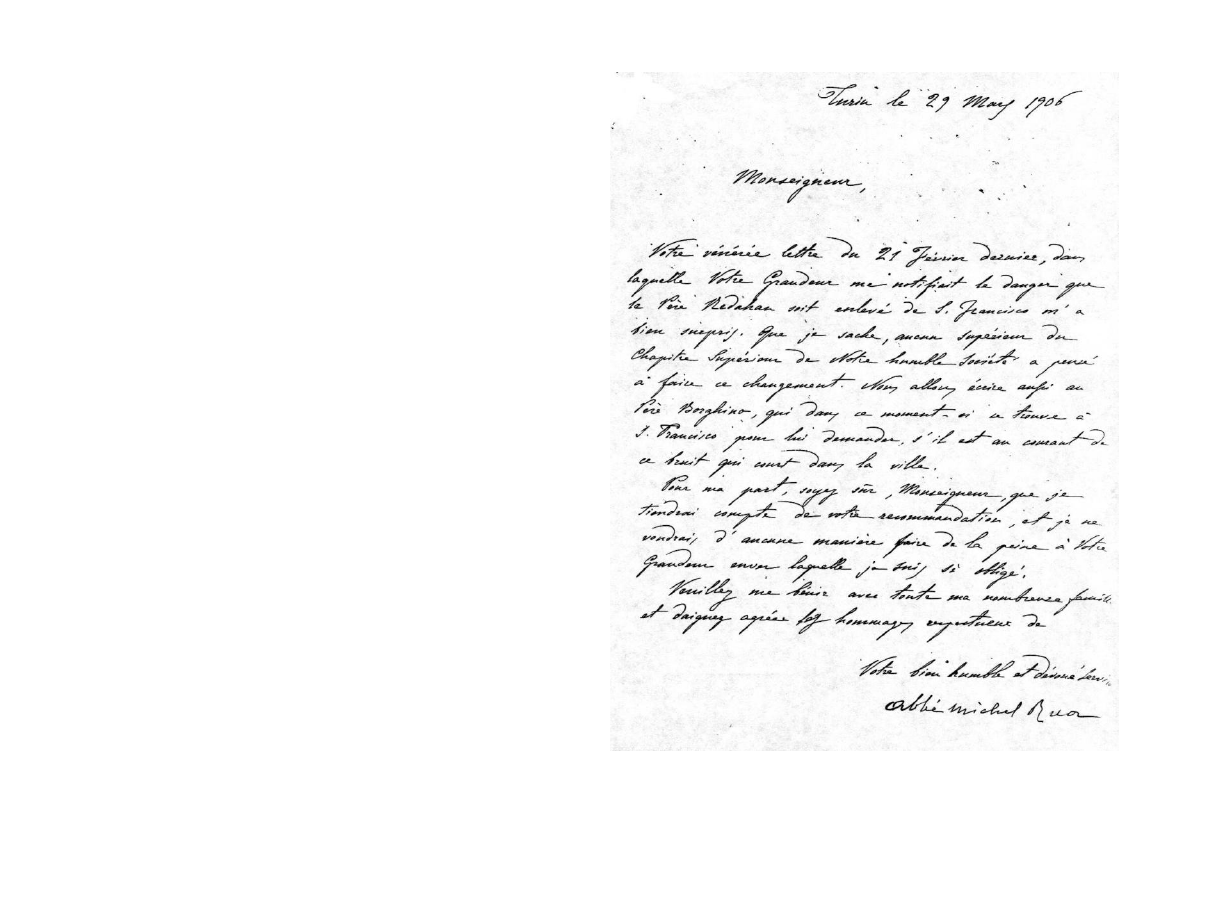 Turin le 29 Mars 1906
Monseigneur,
Votre vénérée lettre du 21 Février dernier, dans
laquelle Votre Grandeur me notifiait le danger que
le Père Redahan soit enlevé de S. Francisco m'a
bien surpris. Que je sache, aucun supérieur du
Chapitre Supérieur de Notre humble Société a pensé
à faire ce changement. Nous allons écrire aussi au
Père Borghino, qui dans ce moment-ci se trouve à
S. Francisco pour lui demander, s'il est au courant de
ce bruit qui court dans la ville.
Pour ma part, soyez sûr, Monseigneur, que je
tiendrai compte de votre recommandation, et je ne
voudrais d'aucune manière faire de la peine à Votre
Grandeur enver laquelle je suis si obligé.
Veuillez me bénir avec toute ma nombreuse famille
et daignez agréer les hommages respectueux de
Votre bien humble et dévoué
Abbé Michel Rua